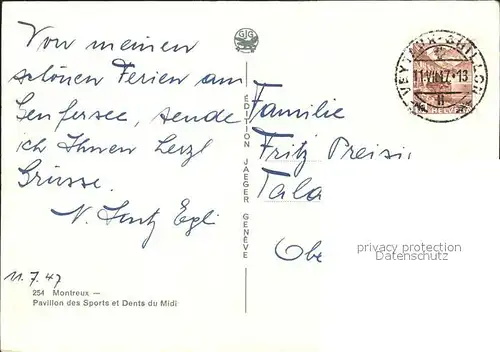 Von meinen
schönen Ferien am
Genfersee, sende
ich Ihnen herzl
Grüsse.
11.7.47
254 Montreux —
Pavillon des Sports et Dents du Midi
GJG
EDITION JAEGER GENÈVE
VEYTAUX-CHILLON
11.VII.47-13
HELVETIA
Familie
Fritz
Tala
Obe
privacy protection
Datenschutz